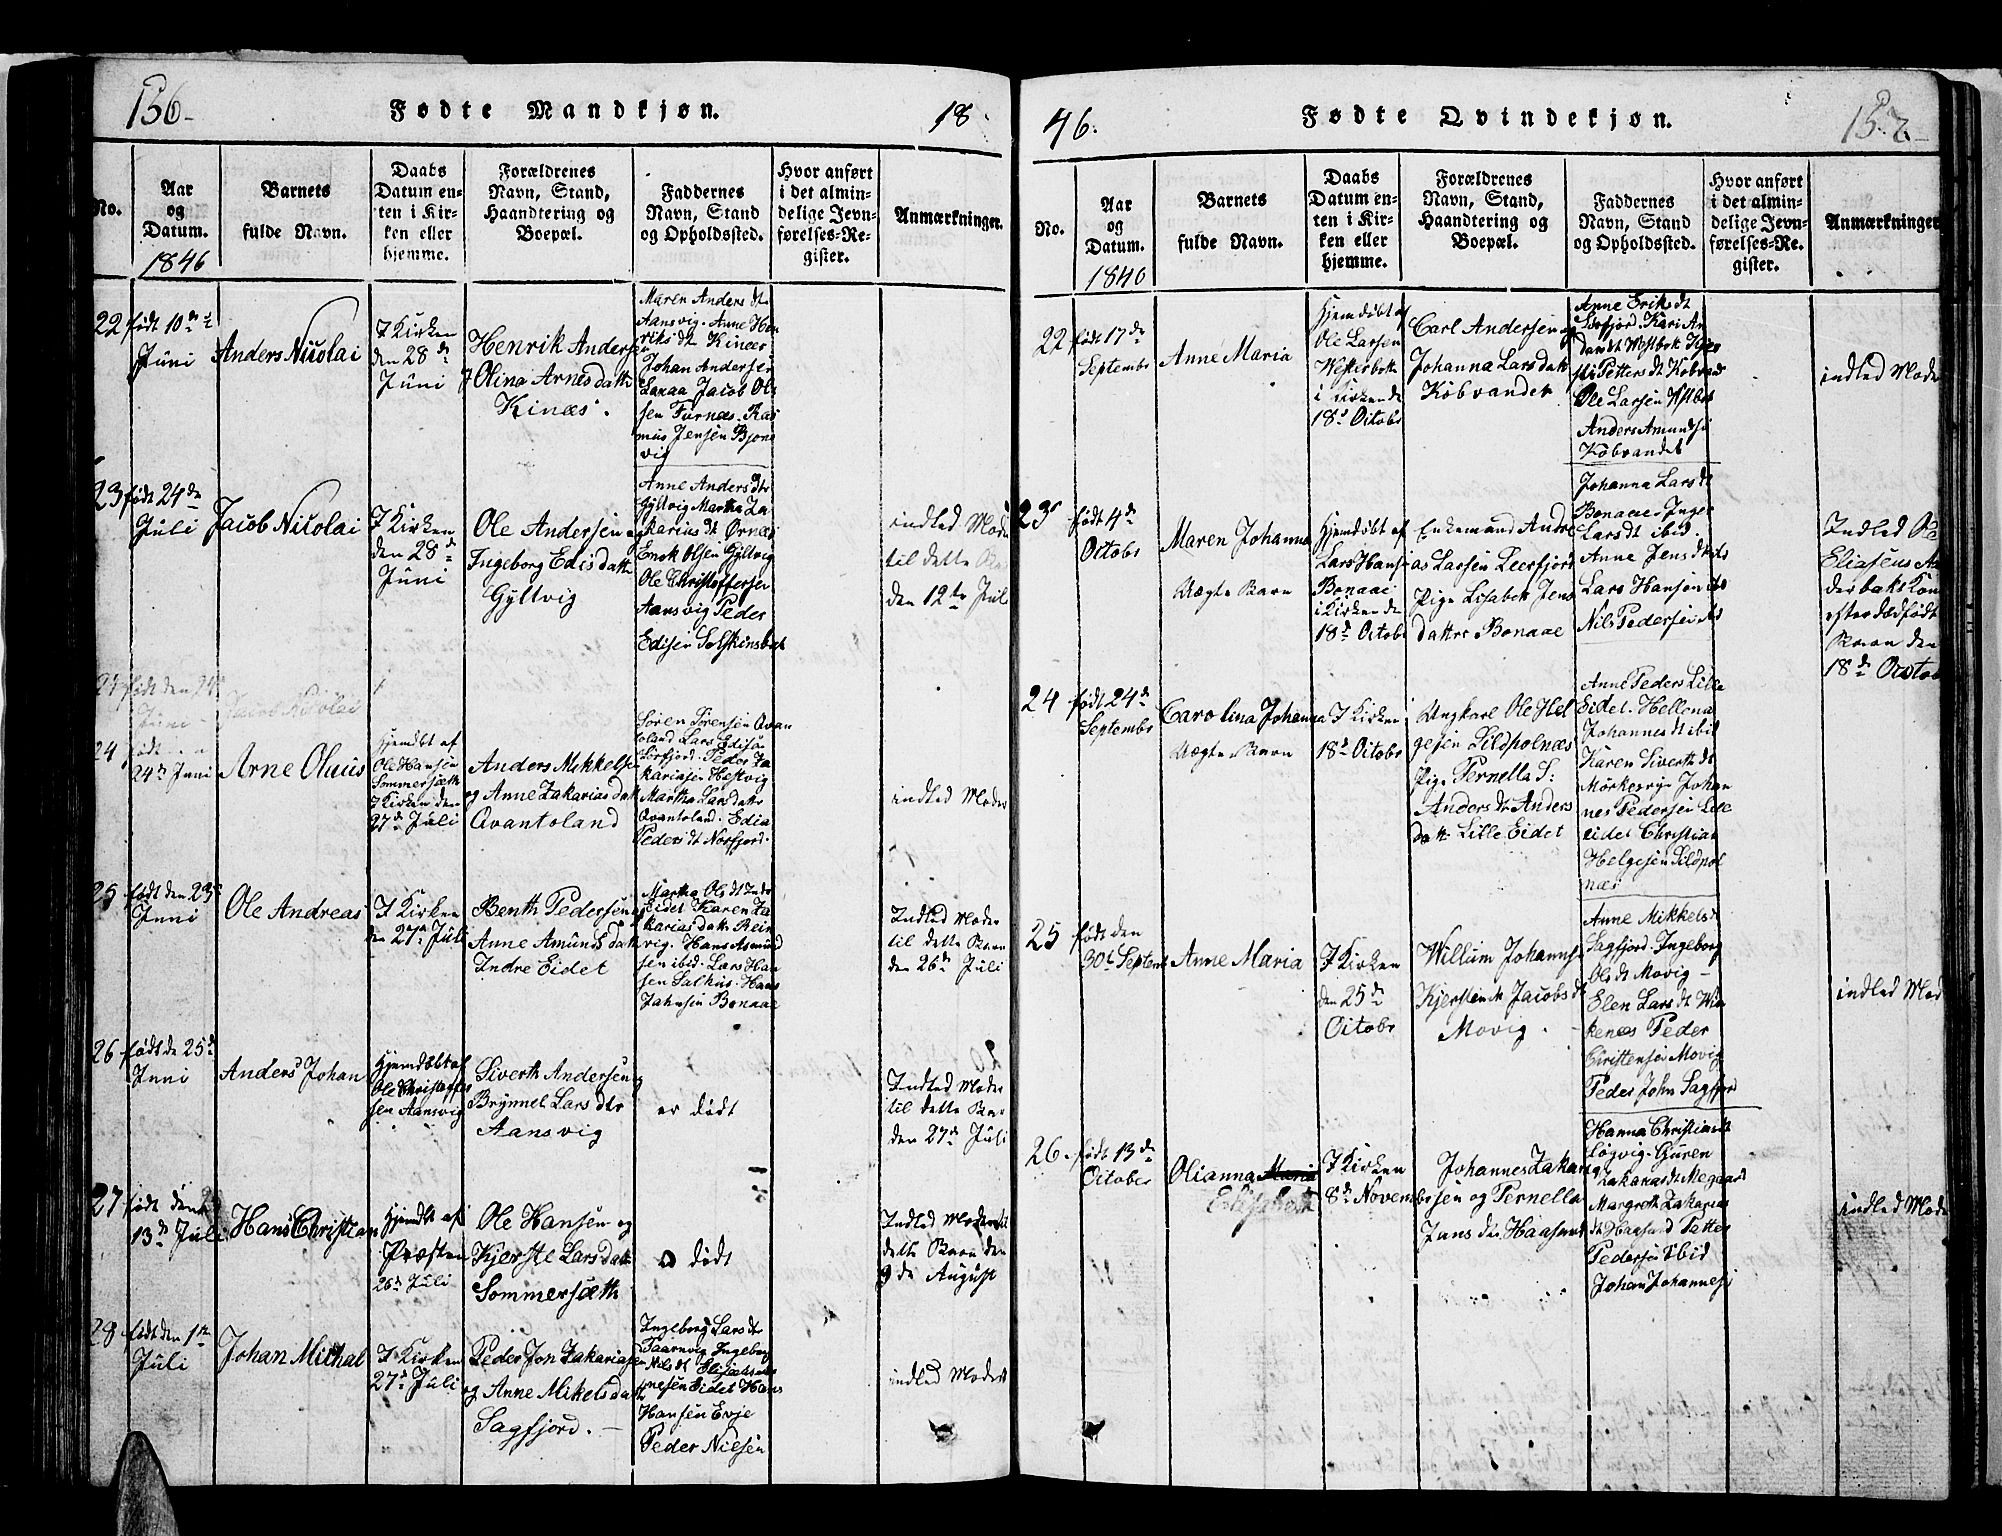 156-
Fødte Mandkjøn.
18
No.
Aar
og
Datum.
1846
Barnets
fulde Navn.
Daabs
Datum en-
ten i Kir-
ken eller
hjemme.
Forældrenes
Navn, Stand,
Haandtering og
Boepæl.
Faddernes
Navn, Stand
og Opholdssted.
Hvor anført
i det almin-
delige Jevn-
førelses-Re-
gister.
Anmærkninger.
22
født 10de
Juni
Anders Nicolai
I Kirken
den 28de
Juni
Henrik Andersen
Olina Arnesdattr
Kinæs.
Maren Andersdt
Aansvig. Anne Hen
riksdt Kinæs
Johan Andersen
Jacob Ol
sen Furnæs. Ras
mus Jensen Bjons
vig
23
født 24de
Juli
Jacob Nicolai
I Kirken
den 28de
Juni
Ole Andersen
Ingeborg Edisdattr
Gyltvig
Anne Andersdtr
Gyltvig Martha Za
kariasdt Ørnæs
Enok Olsen Gyltvig
Ole Christoffersen
Aansvig Peder
Edisen Solskinsbak
indled Mode
til dette
den 12te Juli
født den 24
Juni
Jacob Nicolai
24
født
24de Juni
Arne Oluus
Hjemdbt af
Ole Hansen
Sommersæth
I Kirken den
27de Juli
Anders Mikkelsen
og Anne Zakariasdatt
Qvantoland
Søren Sørensen Qvan
toland Lars Edisen
Norfjord. Peder Za
kariasen Hestvig
Martha Larsdattr
Qvantoland. Edia
Pedersdt Norfjord.
indled Moder
25
født den 23de
Juni
Ole Andreas
I Kirken
den 27de Juli
Benth Pedersen
Anne Amundsdatt
Indre Eidet
Martha Olsdt Indr
Eidet Karen Za
kariasdatt Rein
vig. Hans Asmund
sen ibid. Lars Han
sen Salhus. Hans
Jahnsen Bonaae
Indled Moder
til dette Barn
den 26de Juli
26
født de 25de
Juni
Anders Johan
Hjemdøbt af
Ole Christoffer
sen Aansvig
Siverth Andersen og
Brynnel Lars dtr
Aansvig
er dødt
Indled Moder
til dette Bar
den 27de Juli
27
født den
13de Juli
Hans Christian
Hjemdbt af
Præsten
26de Juli
Ole Hansen og
Kjerste Larsdatt
Sommersæth
dødt
Indled Moder til
dette Barn den
9de August
28
født den 1te
Juli
Johan Mithal
I Kirken
27de Juli
Peder Jon Zakariasen
og Anne Mikelsdatt
Sagfjord. –
Ingeborg Lars dtr
Taarnvig Ingeborg
Nilsdt
Eidet Hans
Hansen Evje
Peder Nielsen
indled Moder
46.
Fødte Qvindekjøn.
157-
No.
Aar
og
Datum.
1846
Barnets
fulde Navn.
Daabs
Datum en-
ten i Kir-
ken eller
hjemme.
Forældrenes
Navn, Stand,
Haandtering og
Boepæl.
Faddernes
Navn, Stand
og Opholdssted.
Hvor anført
i det almin-
delige Jevn-
førelses-Re-
gister.
Anmærkninger
22
født 17de
Septembr
Anne Maria
Hjemdøbt af
Ole Larsen
Westerbotn
i Kirken de
18de Octobr
Carl Andersen og
Johanna Larsdatt
Kobvandet
Anne Eriksdt
Leerfjord. Kari An
dersdt Westbotn
Pettersdt Kobvand
Ole Larsen Westbot
Anders Amundsen
Kobvandet
indled Mode
23
født 4de
Octobr
Maren Johanna
Uægte Barn
Hjemdøbt af
Lars Hansen
Bonaaei
i Kirken de
18de Octobr
Enkemand Andre
as Larsen Leerfjord
Pige Lisabet Jens
dattr Bonaae
Johanna Larsdt
Bonaae Inger
Larsdt ibid.
Anne Jensdt
Lars Hansen
Nils Pedersen
Indled
Eliasens
derbaks Kone
efter dødfødt
Barn den
18de Octob
24
født 24de
Septembr
Carolina Johanna
Uægte Barn
I Kirken
18de Octobr
Ungkarl Ole Hel
gesen Sildpolnæs
Pige Pernella S:
Andersdt Anders
datt. Lille Eidet
Anne Peders Lille
Eidet. Hellena
Johannesdt ibid
Karen Sivertsdt
Mørkesvig Johan
nes Pedersen Lille
eidet Christian
Helgesen Sildpol
næs
25
født den
30te Septem
Anne Maria
I Kirken
den 25de
Octobr
Willum Johannse
Kjerstena Jacobsdt
Movig.
Anne Mikkelsdt
Sagfjord. Ingeborg
Olsdt Movig –
Elen Larsdt Win
kenæs Peder
Christensen Movig
Peder John Sagfjor
indled Mod
26.
født 13de
October
Olianna Maria
Elisabeth
I Kirken
8de Novemb
Johannes Zakarias
sen og Pernella
Jans dtr Haasund
Hanna Christiansdt
Løgvig. Guren
Zakariasdt Megaard
Margreth Zakarias
dt Haasund Patter
Pedersen ibid
Johan Johannese
indled Mode